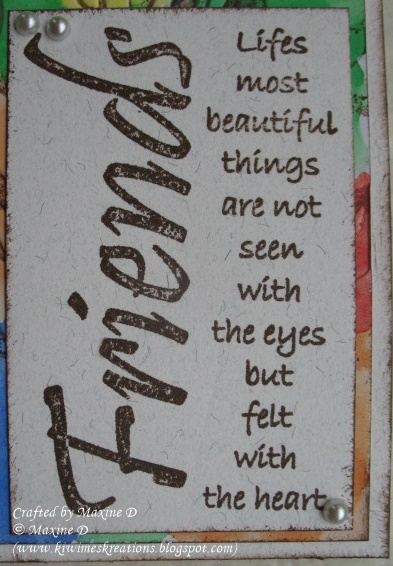 Friends
Lifes
most
beautiful
things
are not
seen
with
the eyes
but
felt
with
the heart
Crafted by Maxine D
© Maxine D
(www.kiwimeskreations.blogspot.com)